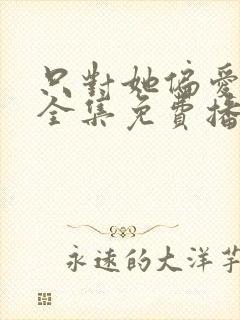 只對她偏愛
全集免費播
永遠的大洋芋